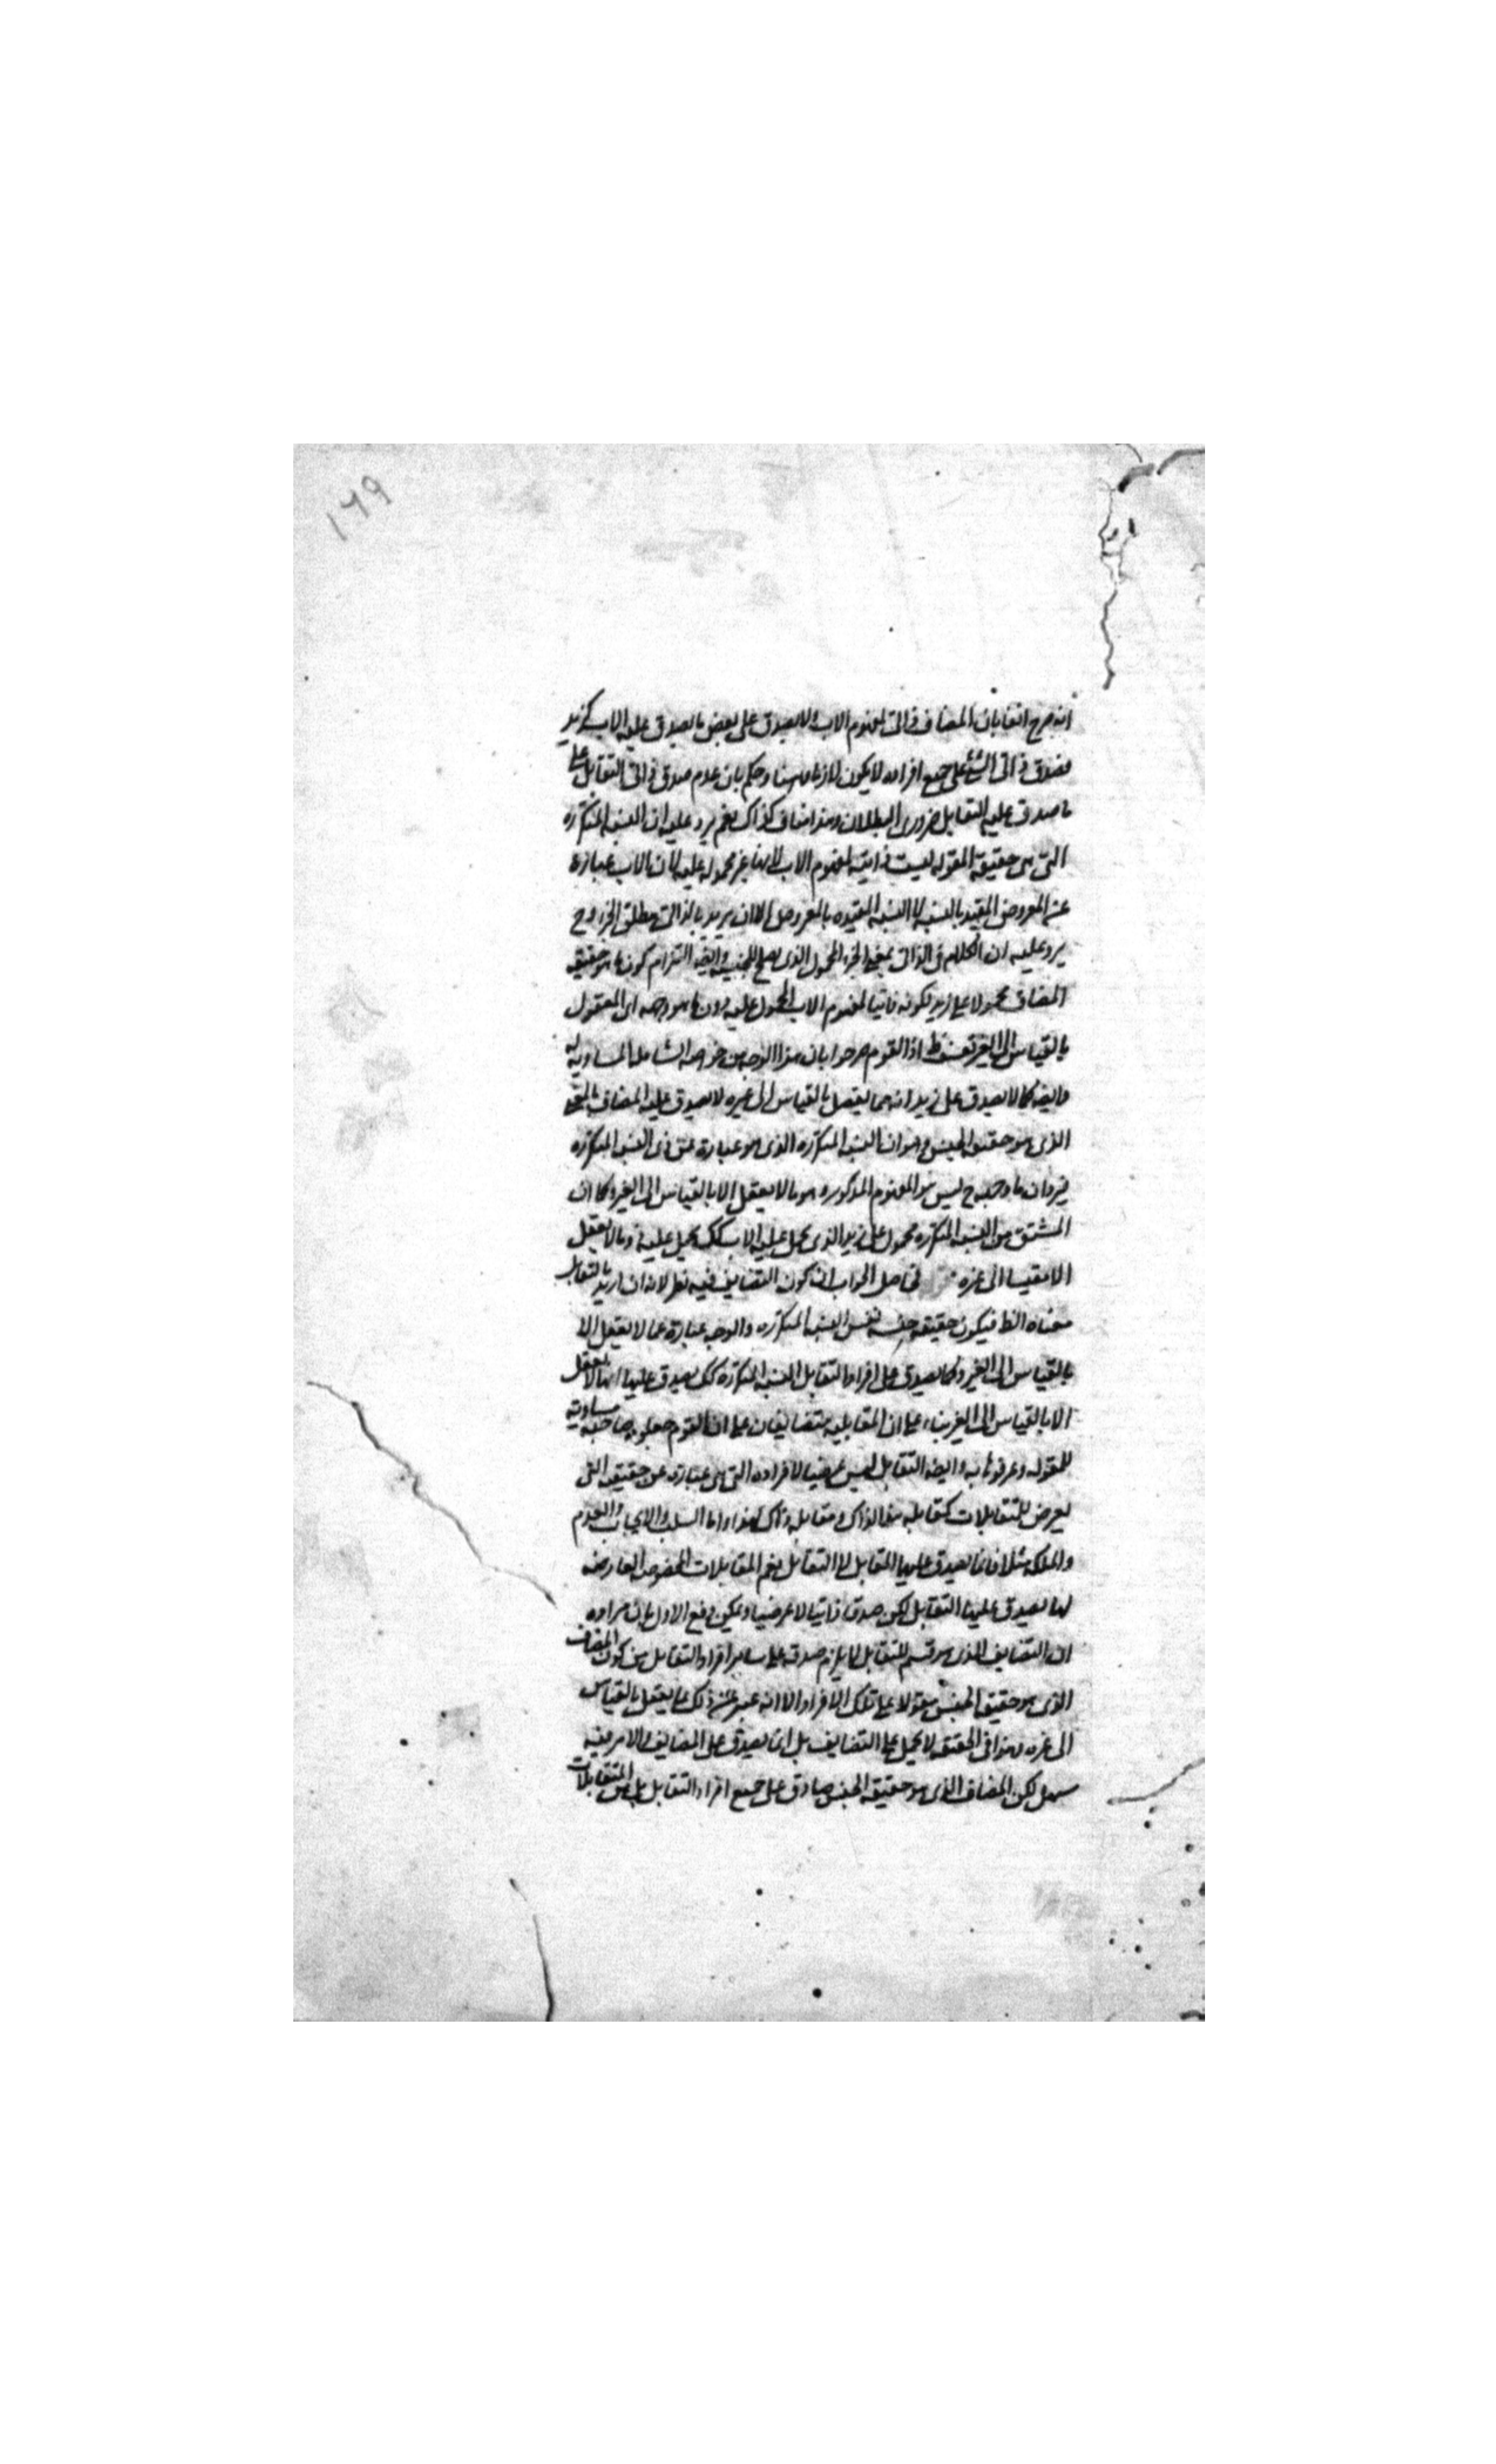 ١٦٩
انه صرح انفا بان المضاف ذاتى لمفهوم الاب ولا يصدق على بعض ما يصدق عليه الاب كزيد
فصدق ذاتى الشئ على جميع افراده لا يكون لازما وحكم بان عدم صدق ذاتى التقابل على
ما صدق عليه التقابل ضرورى البطلان وهذا مناف لذاك نعم يرد عليه ان النسبه المتكرره
التى هى حقيقة المقوله ليست ذاتيه لمفهوم الاب لانها غير محموله عليه لان الاب عبارة
عن المعروض المقيد بالنسبه لا النسبه المقيده بالمعروض الا ان يريد بالذاتى مطلق الجزء وح
يرد عليه ان الكلام فى الذاتى بمعنى الجزء المحمول الذى يصلح للجنسيه وايضه التزام كون ما هو حقيقه
المضاف محمولا على زيد لكونه ذاتيا لمفهوم الاب المحمول عليه دون ما هو وجهه اى المعقول
بالقياس الى الغير تعسف ظ اذ القوم صرحوا بان هذا الوجه من خواصه الشامله المساويه له
وايضه كما لا يصدق على زيد انه مما يعقل بالقياس الى غيره لا يصدق عليه المضاف
الذى هو حقيقه الجنس وهو ان النسبه المتكرره الذى هو عبارة عن ذى النسبه المتكرره
وجهه ح ليس هو المفهوم المذكور وهو ما لا يعقل الا بالقياس الى الغير وكما ان
المشتق من النسبه المتكرره محمول على زيد الذى يحمل عليه الاب كك يحمل عليه ذو ما لا يعقل
الا مقيسا الى غيره حاصل الجواب ان كون التضايف فيه نظر لانه ان اريد بالتقابل
معناه الظ فيكون حقيقه جنسه نفس النسبه المتكرره والوجه عبارة عما لا يعقل الا
بالقياس الى الغير وكما يصدق على افراد التقابل النسبه المتكرره كك يصدق عليها انها لا يعقل
الا بالقياس الى الغير بناء على ان المقابليه متضايفان على ان القوم جعلوه صاحبه مساويه
للمقوله وعرفوها به وايضه التقابل ليس عرضيا لافراده التى هى عبارة عن حقيقه التى
يعرض للمتقابلات كتقابل هذا لذاك ومقابله ذاك لهذا واما السلب والايجاب والعدم
والملكه مثلا فانما يصدق عليها المقابل لا التقابل نعم المقابلات المخصوصه العارضه
لها يصدق عليها التقابل لكن صدقا ذاتيا لا عرضيا ويمكن دفع الاول بان مراده
ان التضايف الذى هو قسم للتقابل لا يلزم صدقه على ساير افراد التقابل من كون المضاف
الذى هو حقيقه الجنس مقولا على تلك الافراد الا انه عبر عن ذلك بما يعقل بالقياس
الى غيره وهو فى الحقيقه لا يحمل على التضايف بل انما يصدق على المضايف والامر فيه
سهل لكن المضاف الذى هو حقيقه الجنس صادق على جميع افراد التقابل بل على المتقابلات